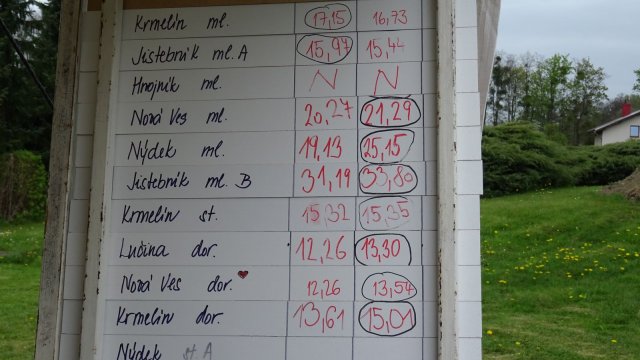 Krmelín ml. 17,15 16,73
Jistebník ml. A 15,97 15,44
Hnojník ml. N N
Nová Ves ml. 20,27 21,29
Nýdek ml. 19,19 25,15
Jistebník ml. B 31,19 33,80
Krmelín st. 15,32 15,35
Lučina dor. 12,26 13,30
Nová Ves dor. 12,26 13,54
Krmelín dor. 13,61 15,01
Nýdek st. A